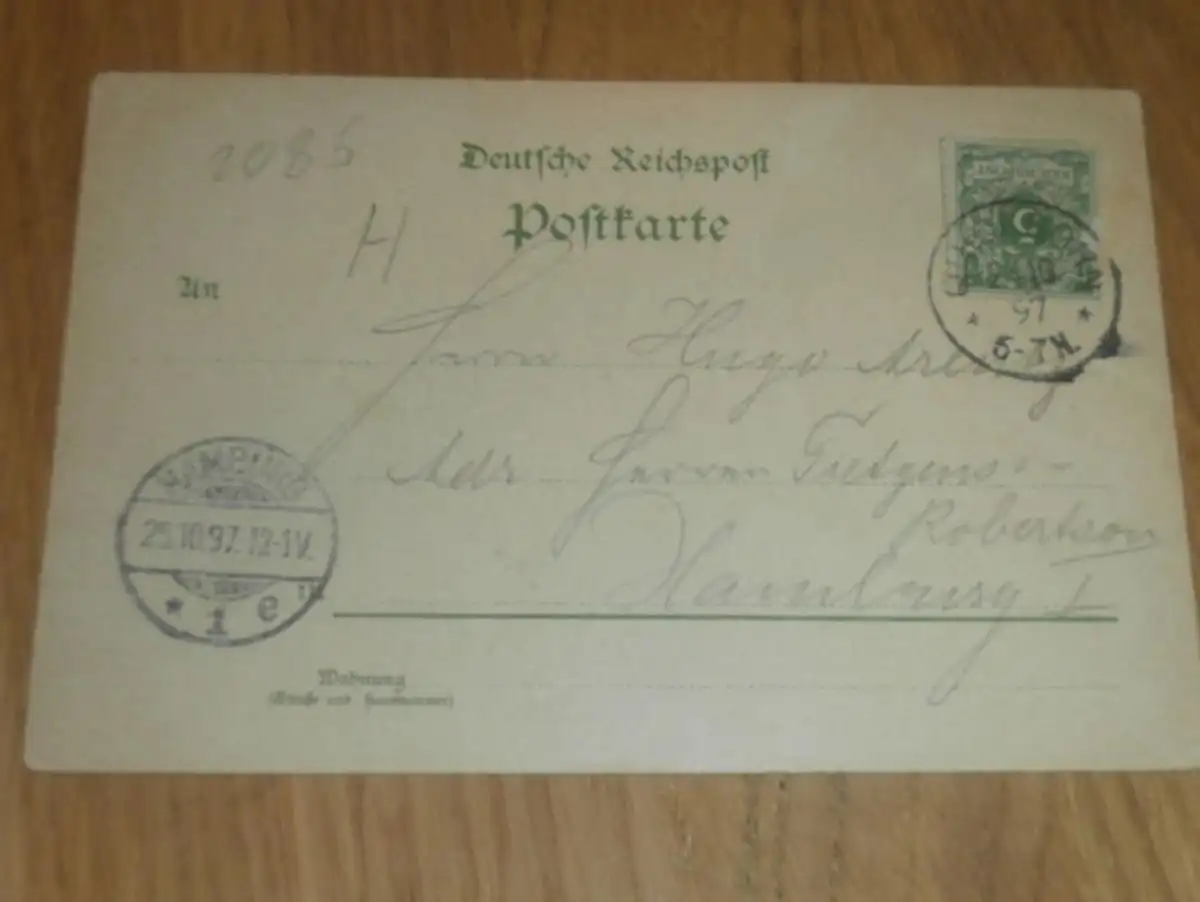 2085
Deutsche Reichspost
Postkarte
H
An
Herrn Hugo
Adr Herren
Robertson
Hamburg 1
97
5-7N.
HAMBURG
25.10.97. 12-1V.
* 1 e
Wohnung
(Straße und Hausnummer)